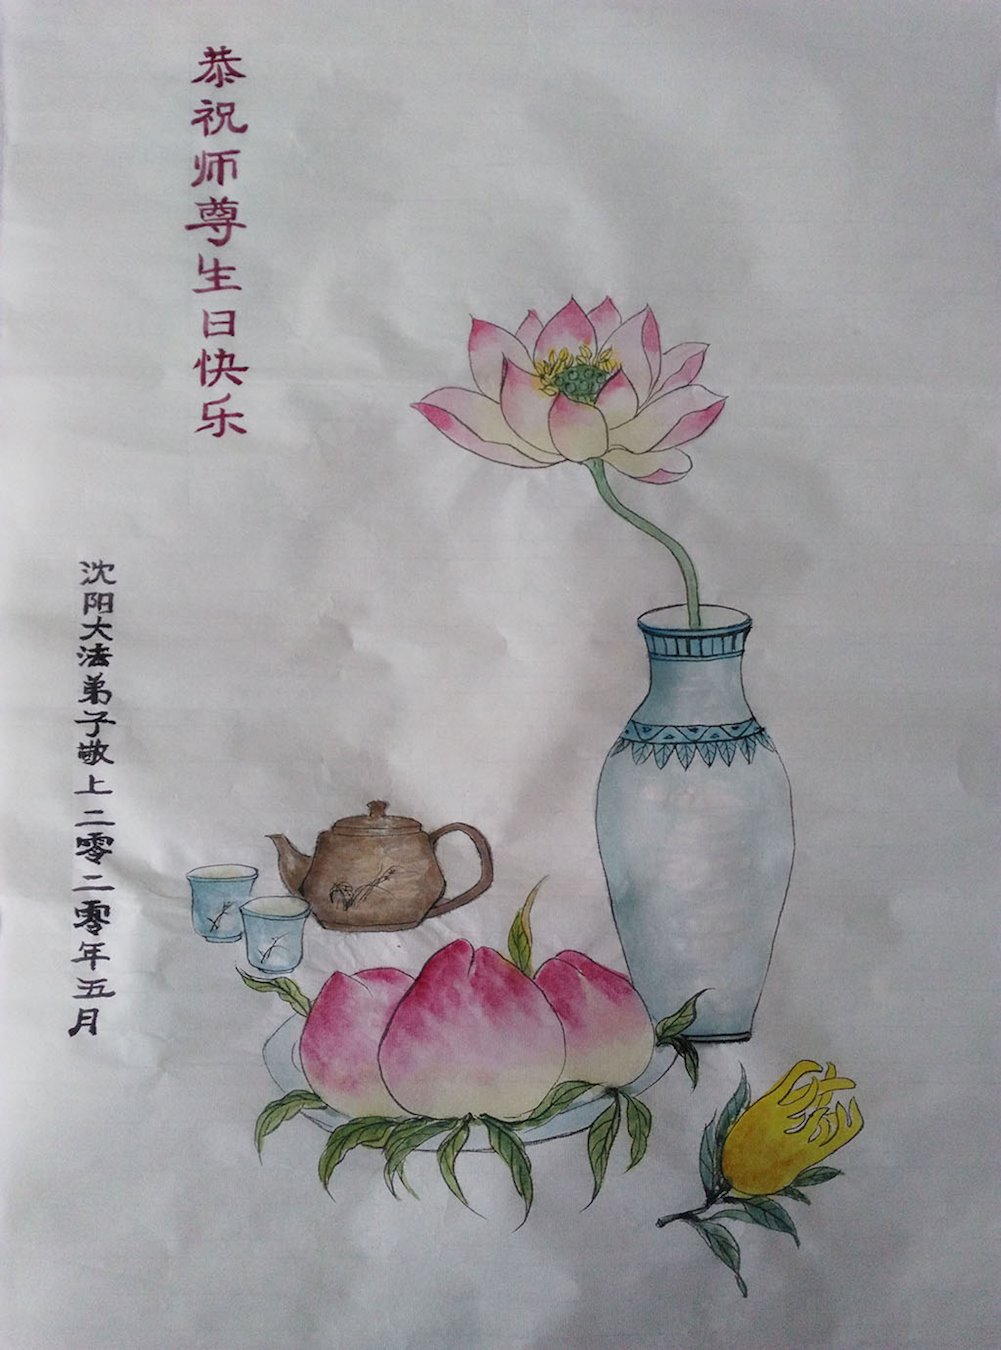 恭祝师尊生日快乐
沈阳大法弟子敬上二零二零年五月